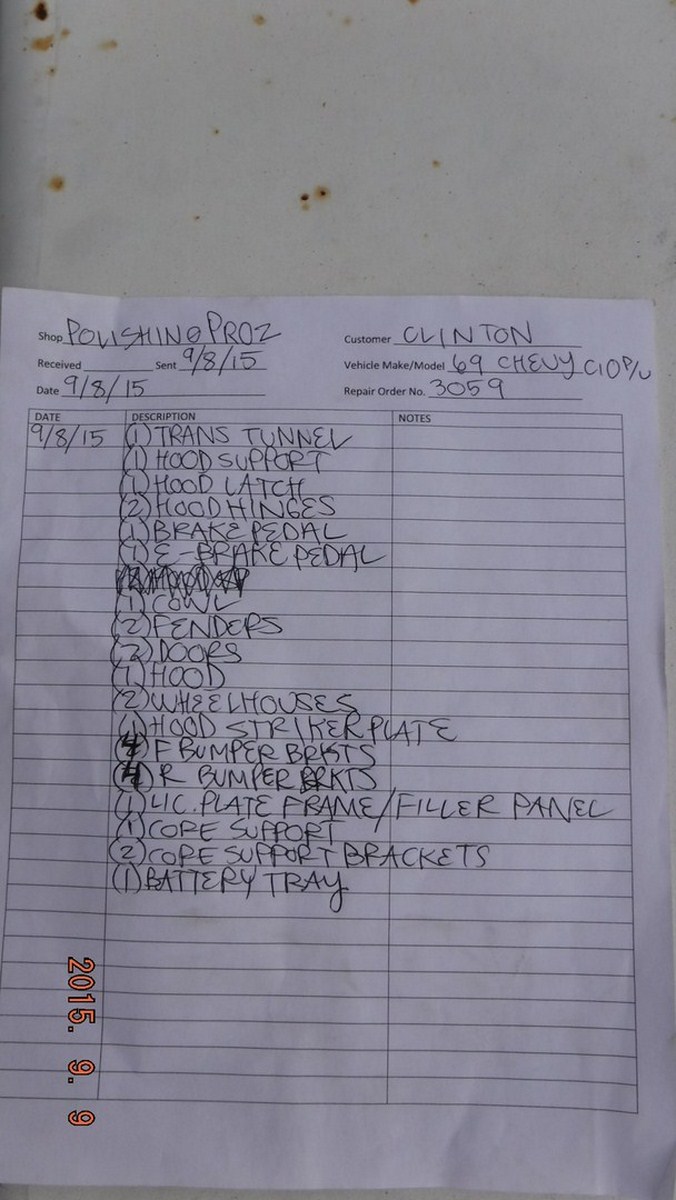 Shop POLISHING PROZ
Customer CLINTON
Received Sent 9/8/15
Vehicle Make/Model 69 CHEVY C10 P/U
Date 9/8/15
Repair Order No. 3059
DATE DESCRIPTION NOTES
9/8/15 (1) TRANS TUNNEL
(1) HOOD SUPPORT
(1) HOOD LATCH
(2) HOOD HINGES
(1) BRAKE PEDAL
(1) E-BRAKE PEDAL
(1) COWL
(2) FENDERS
(2) DOORS
(1) HOOD
(2) WHEELHOUSES
(1) HOOD STRIKER PLATE
(4) F BUMPER BRKTS
(4) R BUMPER BRKTS
(1) LIC. PLATE FRAME/FILLER PANEL
(1) CORE SUPPORT
(2) CORE SUPPORT BRACKETS
(1) BATTERY TRAY
2015. 9. 9